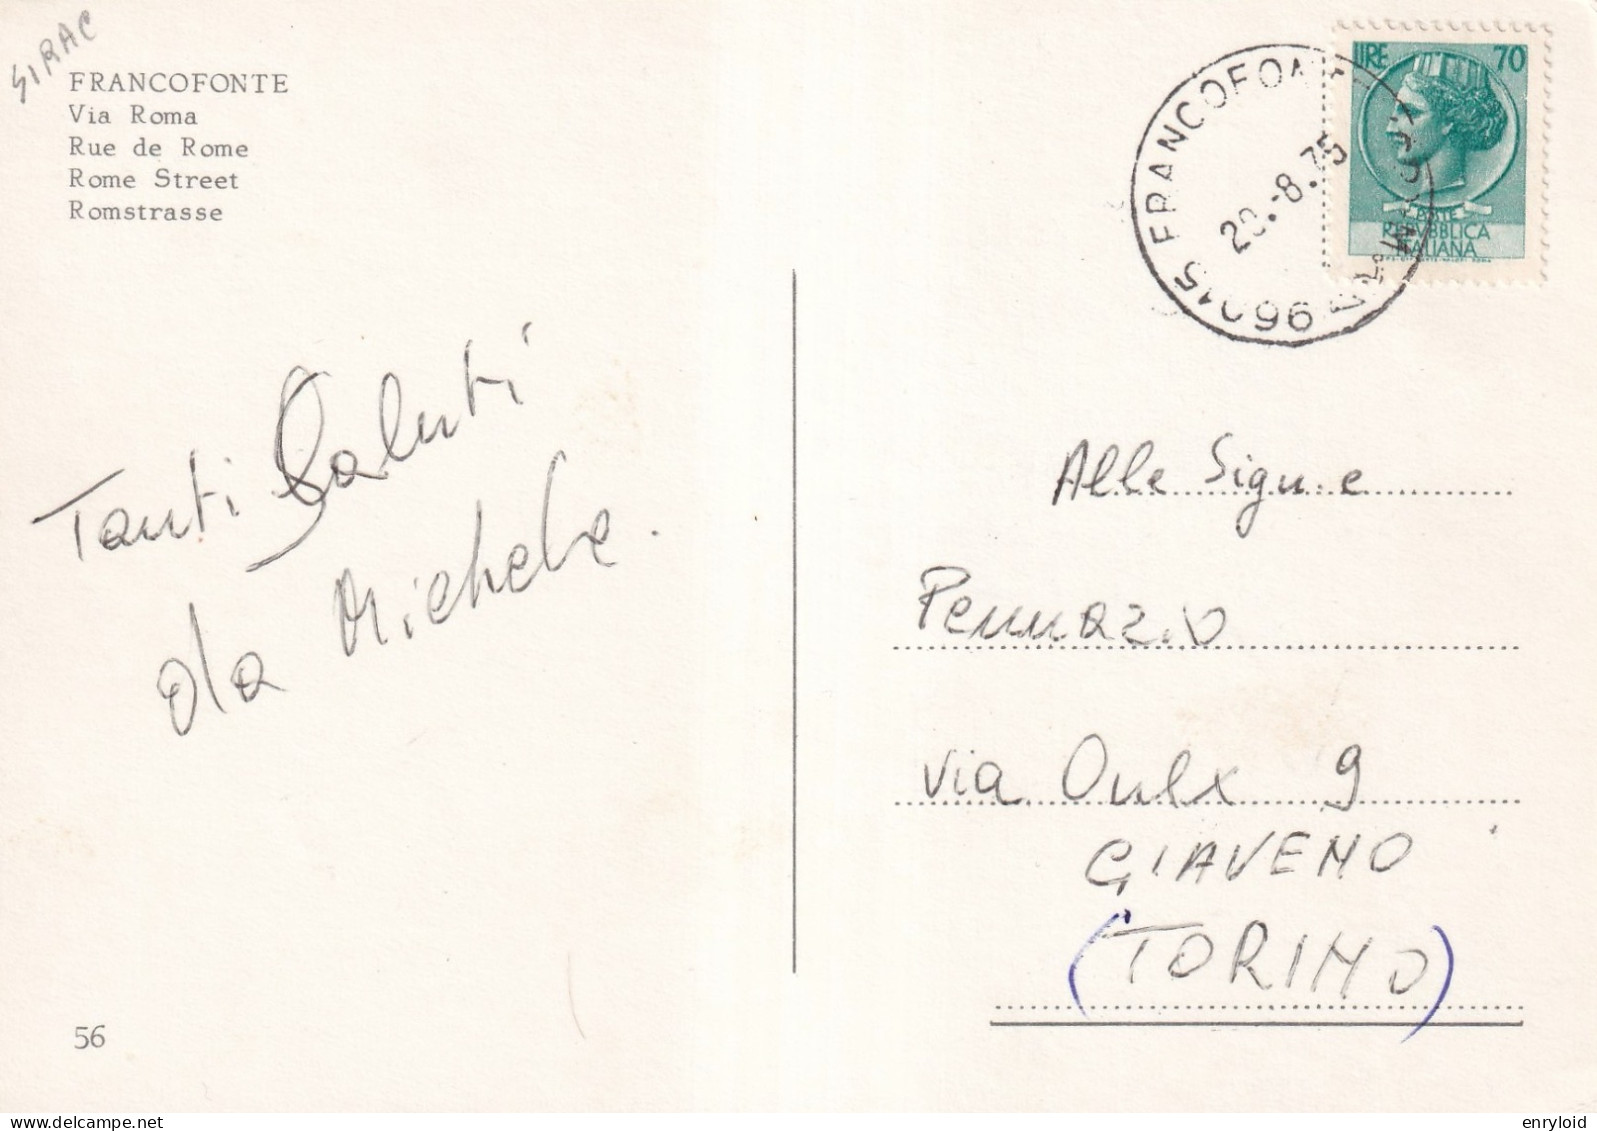 SIRAC
FRANCOFONTE
Via Roma
Rue de Rome
Rome Street
Romstrasse
LIRE 70
POSTE
REPVBBLICA
ITALIANA
96015 FRANCOFONT
20.-8.75
Tanti Saluti
da Michele.
Alle Sign.e
Pennazio
Via Oulx 9
GIAVENO
(TORINO)
56
delcampe.net
enryloid